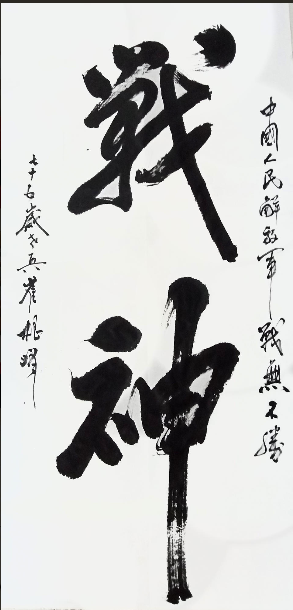 中國人民解放军战無不勝
戰神
七十五歲老兵崔振曜